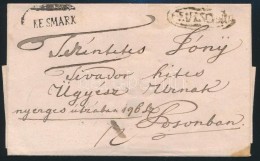 KESMARK
Tekintetes Lóny
Tivador hites
Ügyész Urnak
nyerges utzában 196
Posonban.